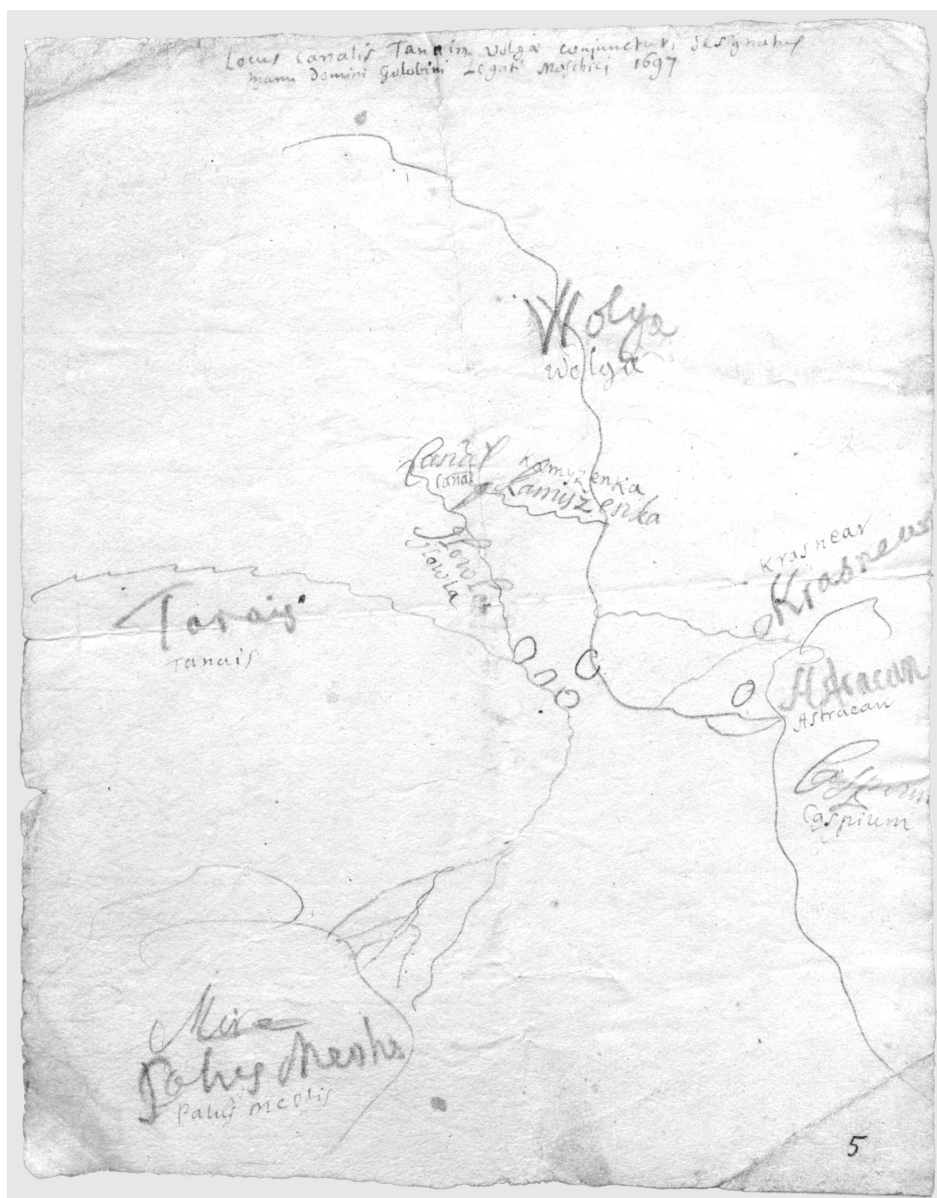 Locus canalis Tanaim Volgâ conjuncturi designatus
manu Domini Golobini Legati Moschici 1697
Wolga
Wolga
Canal
Canal
Kamyzenka
Kamiszenka
Glowla
Glowla
Krasnear
Krasnear
Tanais
Tanais
Astracan
Astracan
Caspium
Caspium
Mare
Palus Meotis
Palus meotis
5